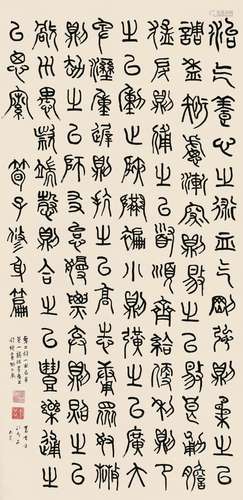 治气養心之術血气剛強則柔之以
調和知慮漸深則一之以易良勇膽
猛戾則輔之以道順齊給便利則節
之以動止狹隘褊小則廓之以廣大
卑溼重遲則抗之以高志庸衆駑散
則劫之以師友怠慢僄棄則炤之以
禍災愚款端愨則合之以禮樂通之
以思索 荀子修身篇